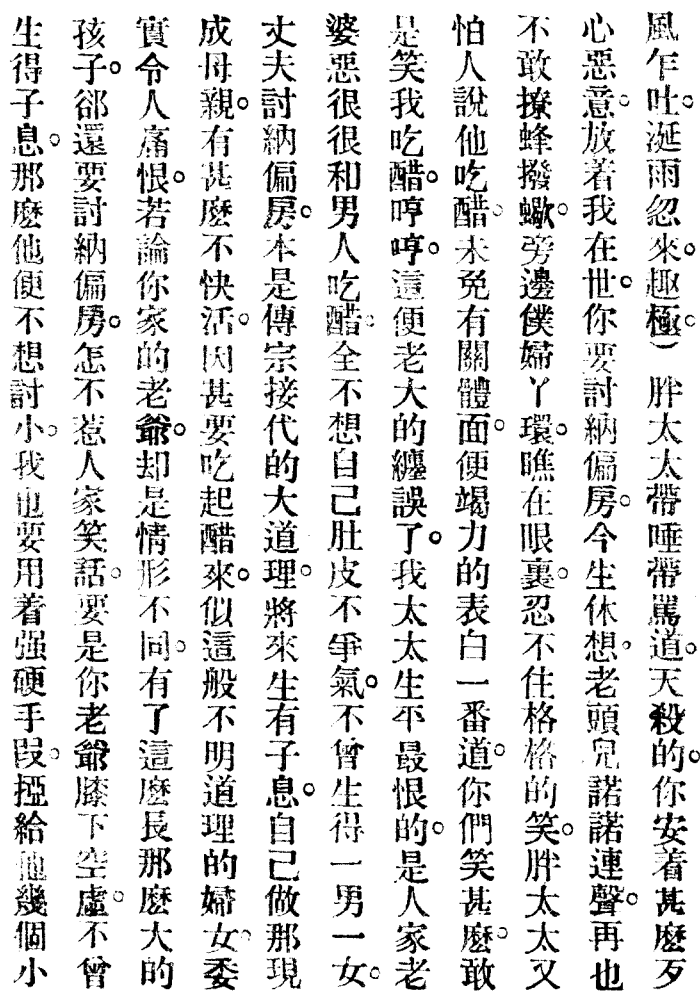 風乍吐。涎雨忽來。趣極。)胖太太帶唾帶罵道。天殺的。你安着甚麼歹
心惡意。放着我在世。你要討納偏房。今生休想。老頭兒諾諾連聲。再也
不敢撩蜂撥蠍。旁邊僕婦丫環。瞧在眼裏。忍不住格格的笑。胖太太又
怕人說他吃醋。未免有關體面。便竭力的表白一番道。你們笑甚麼。敢
是笑我吃醋。哼哼。這便老大的纏誤了。我太太生平最恨的。是人家老
婆惡很很和男人吃醋。全不想自己肚皮不爭氣。不曾生得一男一女。
丈夫討納偏房。本是傳宗接代的大道理。將來生有子息。自己做那現
成母親。有甚麼不快活。因甚要吃起醋來。似這般不明道理的婦女。委
實令人痛恨。若論你家的老爺。却是情形不同。有了這麼長那麼大的
孩子。郤還要討納偏房。怎不惹人家笑話。要是你老爺膝下空虛。不曾
生得子息。那麼他便不想討小。我也要用着强硬手段。揠給他幾個小